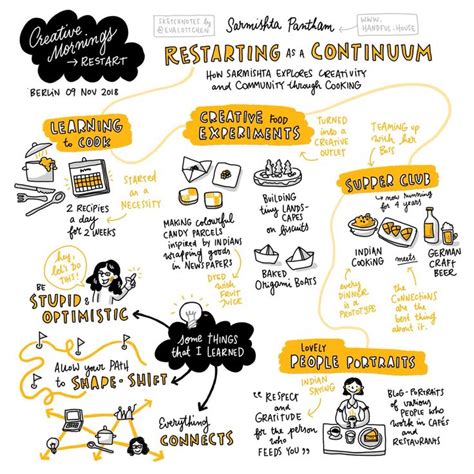 Creative
Mornings
→ RESTART
BERLIN 09 NOV 2018
SKETCHNOTES by
@EVALOTTCHEN
Sarmishta Pantham
WWW.
HANDFUL.HOUSE
RESTARTING AS A CONTINUUM
HOW SARMISHTA EXPLORES CREATIVITY
and COMMUNITY through COOKING
LEARNING
to COOK
2 RECIPIES
a day
for
2 WEEKS
STARTED
as a
NECESSITY
CREATIVE FOOD
EXPERIMENTS
TURNED
into a
CREATIVE
OUTLET
MAKING COLOURFUL
CANDY PARCELS
inspired by INDIANS
wrapping goods
in NEWSPAPERS
DYED
with
FRUIT
JUICE
BUILDING
tiny LANDS-
CAPES
on biscuits
BAKED
Origami BOATS
TEAMING up
with her
BOTS
SUPPER CLUB
→ now running
for 4 years
INDIAN
COOKING
meets
GERMAN
CRAFT
BEER
every
DINNER is
a
PROTOTYPE
the
CONNECTIONS
are the
best thing
about it.
hey,
let's do
THIS!
BE
STUPID &
OPTIMISTIC
some things
that I learned
ALLOW your PATH
to SHAPE-SHIFT
Everything
CONNECTS
LOVELY
PEOPLE PORTRAITS
INDIAN
SAYING
"RESPECT
and
GRATITUDE
for the person
who
FEEDS YOU"
BLOG-PORTRAITS
of various
PEOPLE who
work in CAFÉS
and
RESTAURANTS